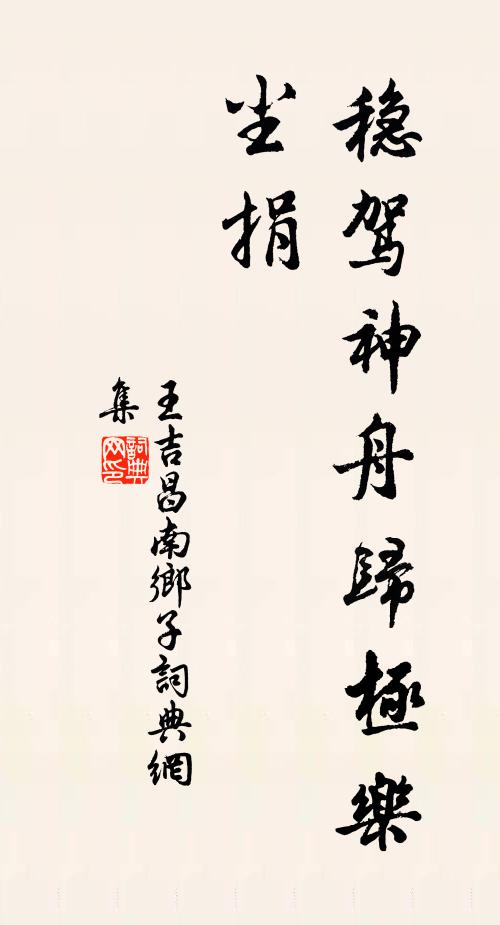 稳驾神舟歸極樂
尘捐
王吉昌南鄉子詞典網
集
詞典
网印